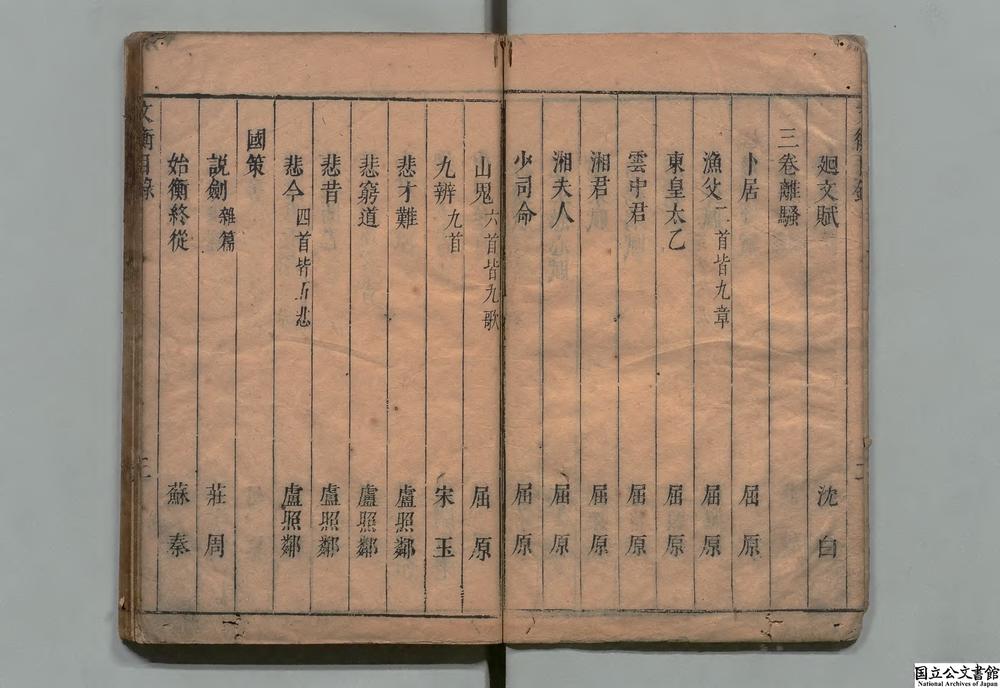 廻文賦 沈白
三卷離騷
卜居 屈原
漁父 二首皆九章 屈原
東皇太乙 屈原
雲中君 屈原
湘君 屈原
湘夫人 屈原
少司命 屈原
山鬼 六首皆九歌 屈原
九辨 九首 宋玉
悲才難 盧照鄰
悲窮道 盧照鄰
悲昔 盧照鄰
悲今 四首皆五悲 盧照鄰
國策
說劍 雜篇 莊周
始衡終從 蘇秦
文衡目錄 三
国立公文書館
National Archives of Japan